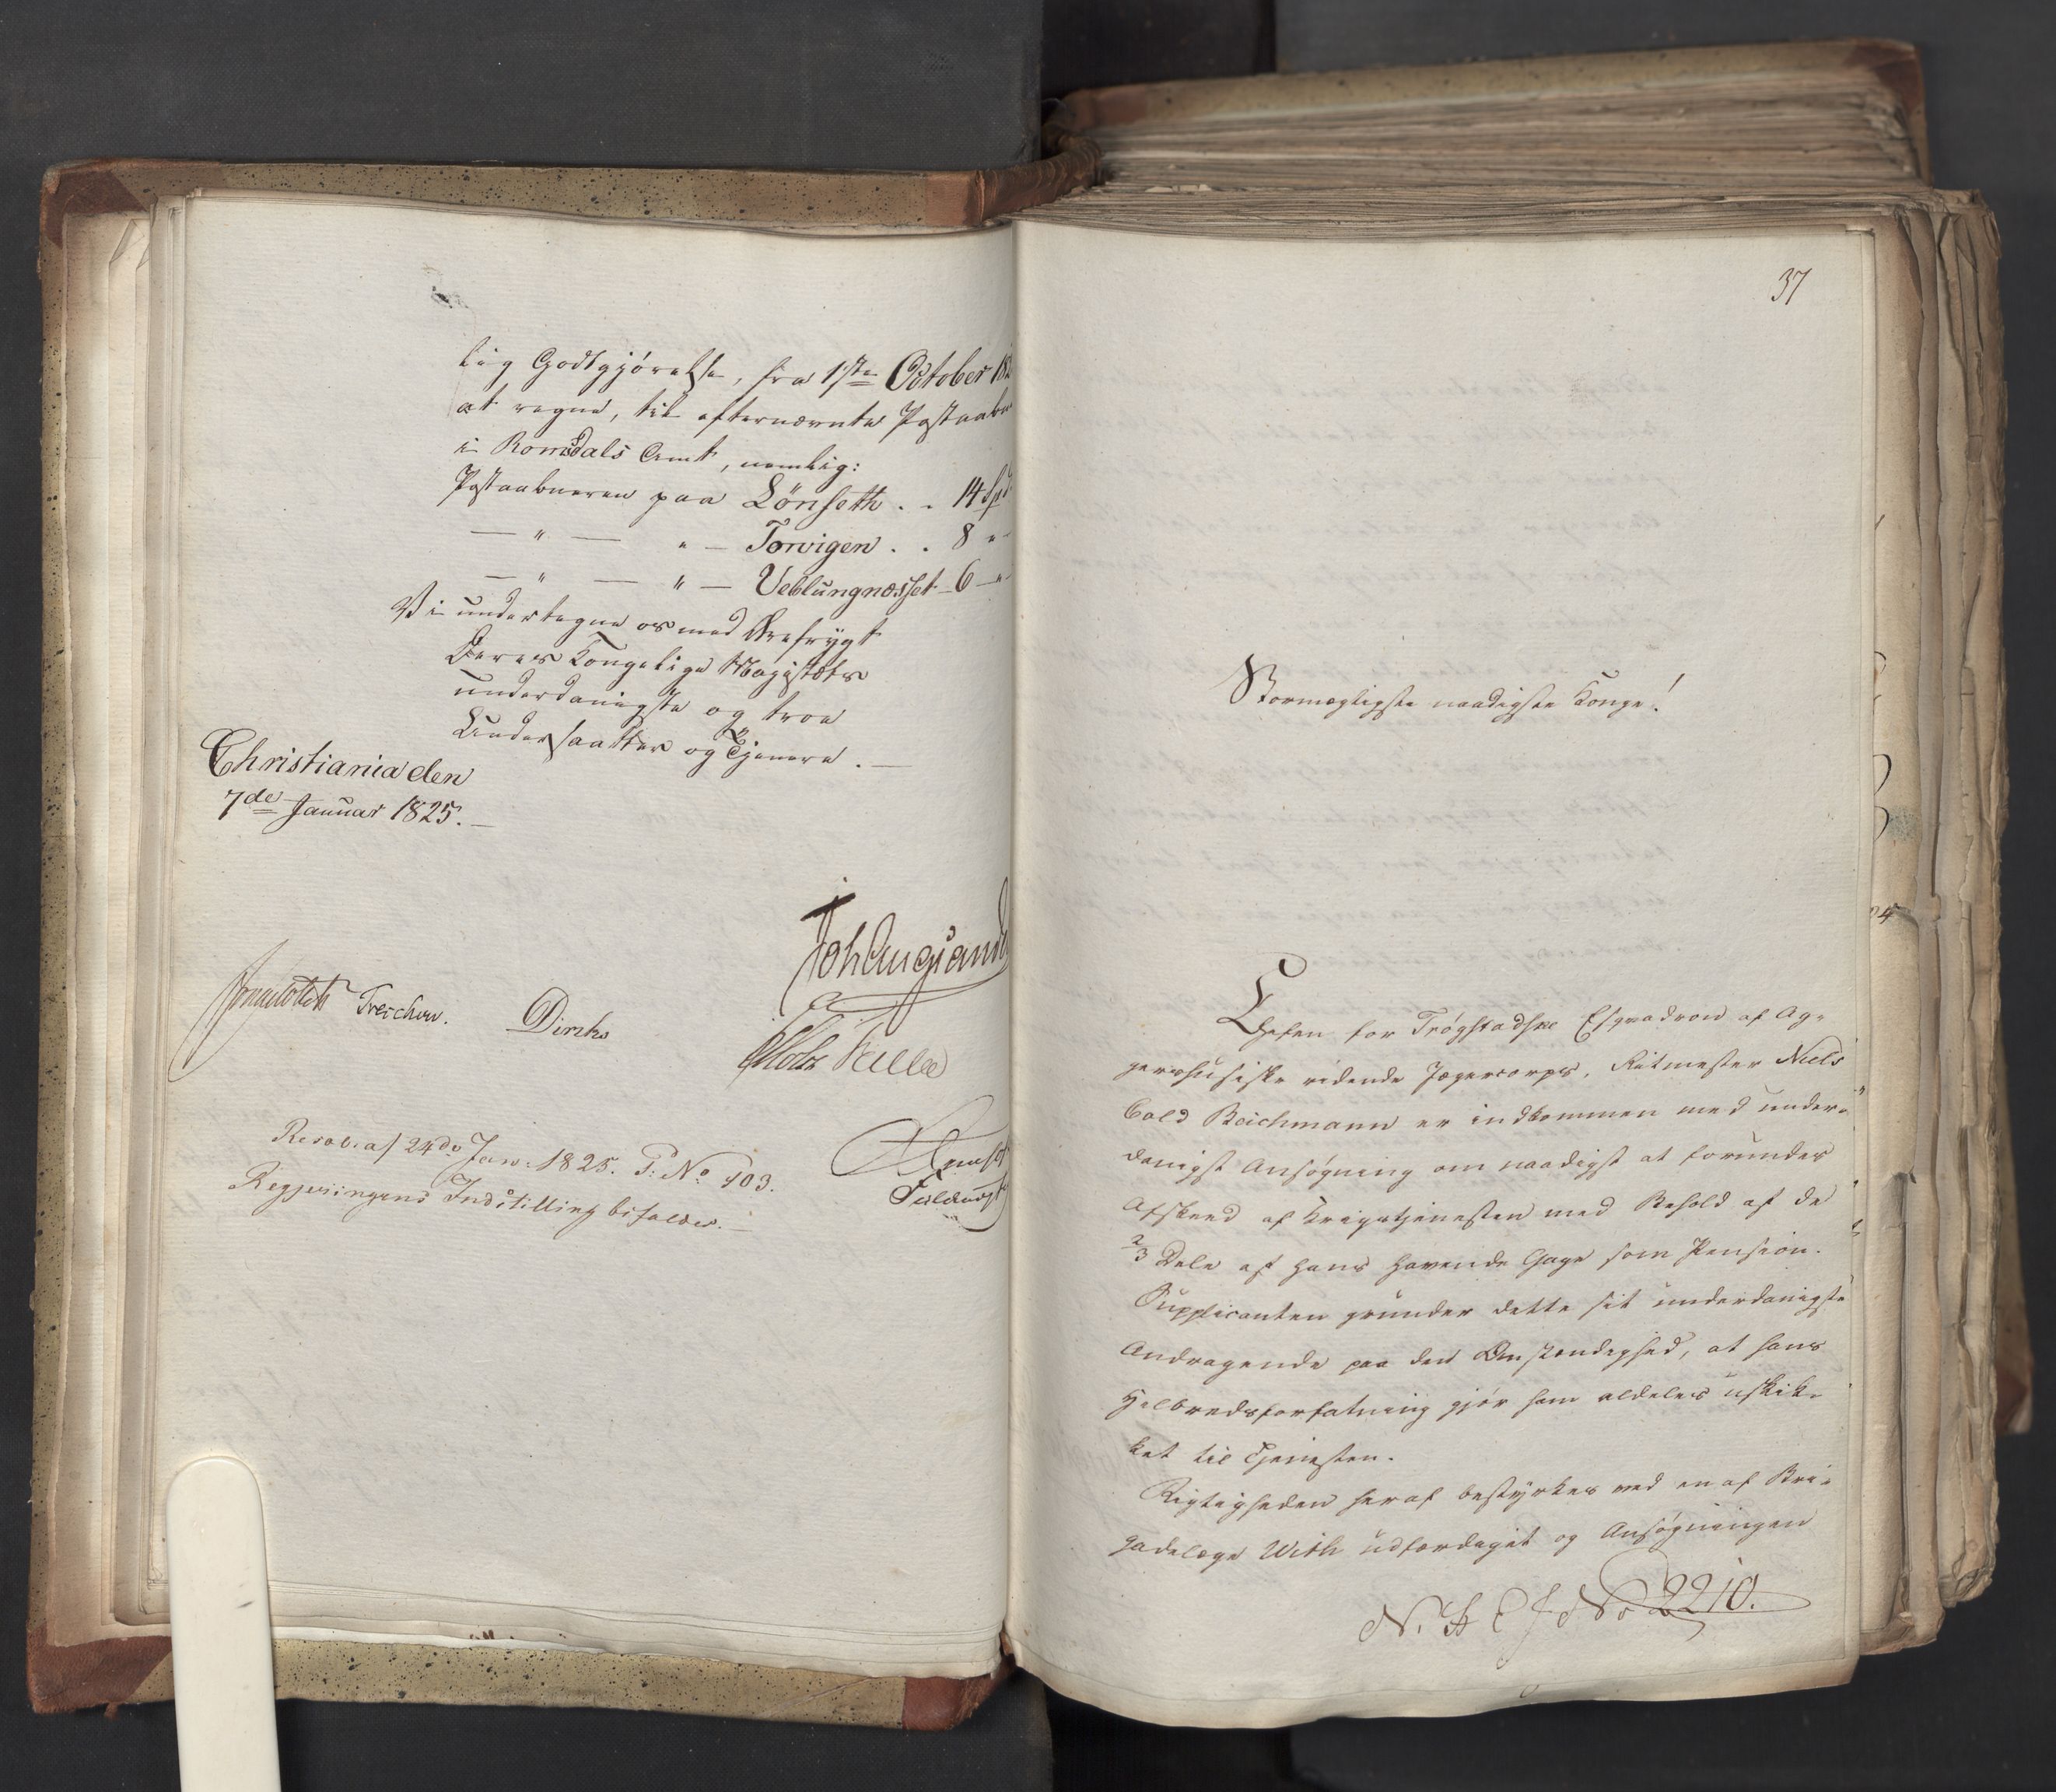 lig Godtgjörelse, fra 1ste October 18
at regne, til efternævnte Postaabn
i Romsdals Amt, nemlig:
Postaabneren paa Lönseth . . 14 Spd
— " — " — Torvigen . . 8 "
— " — " — Veblungnæsset - 6 — "
Vi undertegne os med Ærefrygt
Deres Kongelige Majestæts
underdanigste og troe
Undersaatter og Tjenere. —
Christiania den
7de Januar 1825. —
Joh Aug Sand
Jonas Collett Treschow. Diriks
Motz Krebs
Resol. af 24de Jan: 1825. P: No 403.
Regjeringens Indstilling bifaldes.
Falbe
37
Stormægtigste naadigste Konge!
Chefen for Trögstadske Esquadron af Ag-
gershusiske ridende Jægercorps, Ritmester Niels
Cold Beichmann er indkommen med under-
danigst Ansögning om naadigst at forundes
Afskeed af Krigstjenesten med Behold af de
2/3 Dele af hans havende Gage som Pension.
Supplicanten grunder dette sit underdanigste
Andragende paa den Omstændighed, at hans
Helbredsforfatning gjör ham aldeles uskik-
ket til Tjenesten.
Rigtigheden heraf bestyrkes ved en af Bri-
gadelæge With udfærdiget og Ansögningen
No 2210.